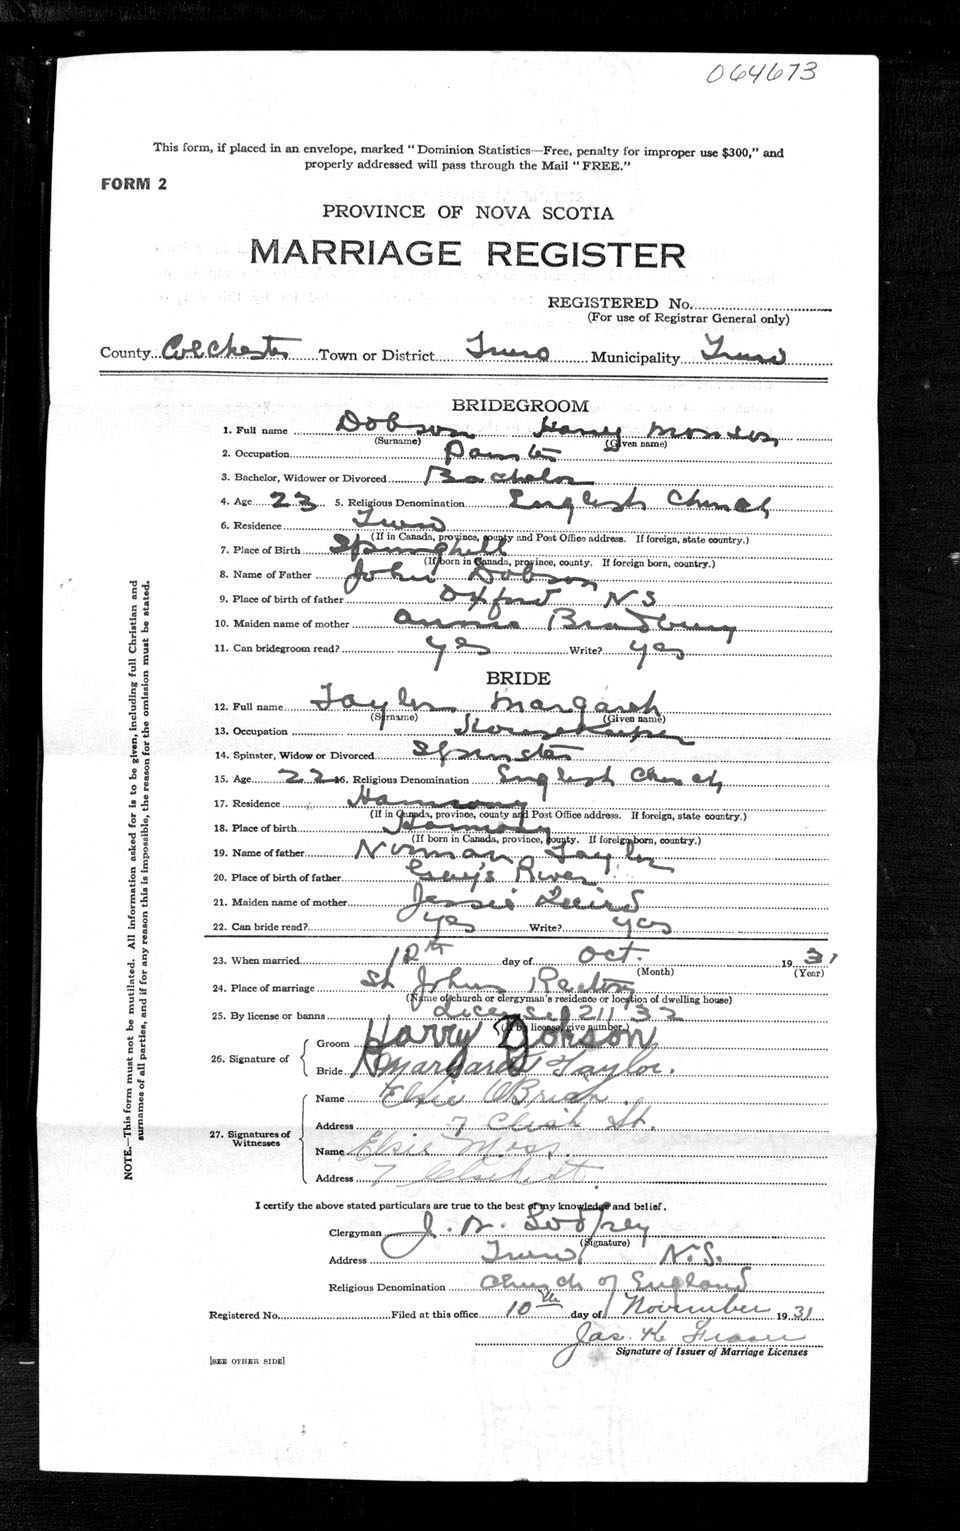 064673
This form, if placed in an envelope, marked "Dominion Statistics—Free, penalty for improper use $300," and
properly addressed will pass through the Mail "FREE."
FORM 2
PROVINCE OF NOVA SCOTIA
MARRIAGE REGISTER
REGISTERED No.
(For use of Registrar General only)
County Colchester Town or District Truro Municipality Truro
BRIDEGROOM
1. Full name Dobson Harry
(Surname) (Given name)
2. Occupation Painter
3. Bachelor, Widower or Divorced Bachelor
4. Age 23 5. Religious Denomination English Church
6. Residence Truro
(If in Canada, province, county and Post Office address. If foreign, state country.)
7. Place of Birth Springhill
(If born in Canada, province, county. If foreign born, country.)
8. Name of Father John Dobson
9. Place of birth of father Oxford N S
10. Maiden name of mother Annie Bradbury
11. Can bridegroom read? yes Write? yes
BRIDE
12. Full name Taylor Margaret
(Surname) (Given name)
13. Occupation Housekeeper
14. Spinster, Widow or Divorced Spinster
15. Age 22 16. Religious Denomination English Church
17. Residence Harmony
(If in Canada, province, county and Post Office address. If foreign, state country.)
18. Place of birth Harmony
(If born in Canada, province, county. If foreign born, country.)
19. Name of father Norman Taylor
20. Place of birth of father River
21. Maiden name of mother Jessie
22. Can bride read? yes Write? yes
23. When married 12th day of Oct. 1931
(Month) (Year)
24. Place of marriage St Johns Rectory
(Name of church or clergyman's residence or location of dwelling house)
25. By license or banns License 21132
(If by license, give number.)
26. Signature of
Groom Harry Dobson
Bride Margaret Taylor.
27. Signatures of Witnesses
Name Elsie O'Brian.
Address 7 St.
Name Elsie Moss.
Address 7 St.
I certify the above stated particulars are true to the best of my knowledge and belief.
Clergyman J. Godfrey
(Signature)
Address Truro N.S.
Religious Denomination Church of England
Registered No. Filed at this office 10th day of November 1931
Jas. K. Fraser
Signature of Issuer of Marriage Licenses
[SEE OTHER SIDE]
NOTE.—This form must not be mutilated. All information asked for is to be given, including full Christian and
surnames of all parties, and if for any reason this is impossible, the reason for the omission must be stated.